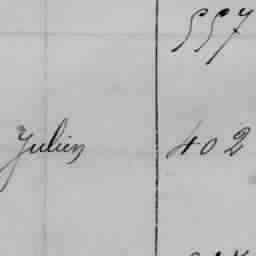 557
Julien 402